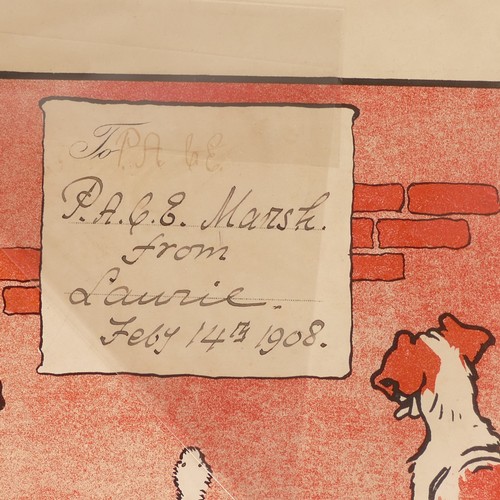 To P.A. & E.
P.A. & E. Marsh.
from
Laurie.
Feby 14th 1908.